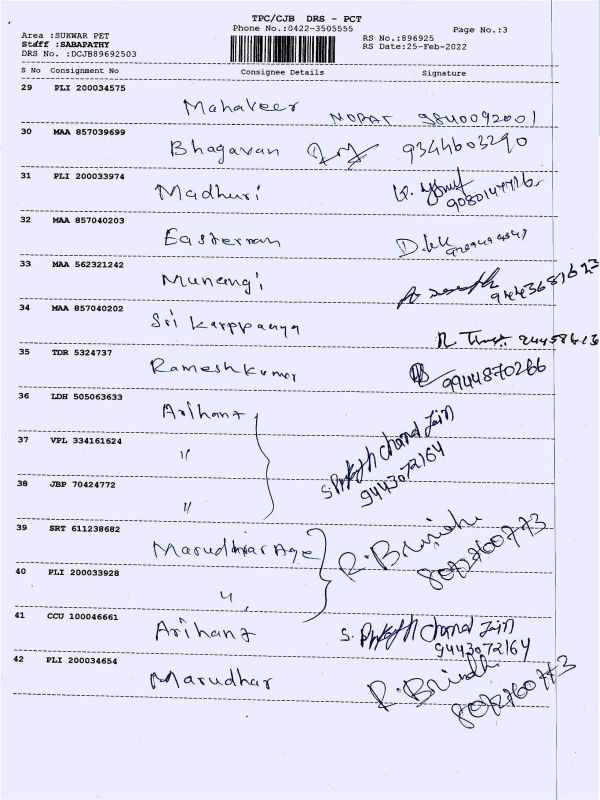 TPC/CJB DRS - PCT
Phone No.:0422-3505555
Page No.:3
Area :SUKWAR PET
Staff :SABAPATHY
DRS No. :DCJB89692503
RS No.:896925
RS Date:25-Feb-2022
S No Consignment No Consignee Details Signature
29 PLI 200034575
Mahaveer 9840092001
30 MAA 857039699
Bhagavan 9344603290
31 PLI 200033974
Madhuri
32 MAA 857040203
Easterran
33 MAA 562321242
Munangi
34 MAA 857040202
Sri Karppaaya
35 TDR 5324737
Rameshkumar 9944870266
36 LDH 505063633
Arihant
37 VPL 334161624
〃
S. Prkath Chand Jain
9443072164
38 JBP 70424772
〃
39 SRT 611238682
Marudhar Age R. Brindh
8072760773
40 PLI 200033928
〃
41 CCU 100046661
Arihant S. Prkath Chand Jain
9443072164
42 PLI 200034654
Marudhar R. Brindh
8072760773